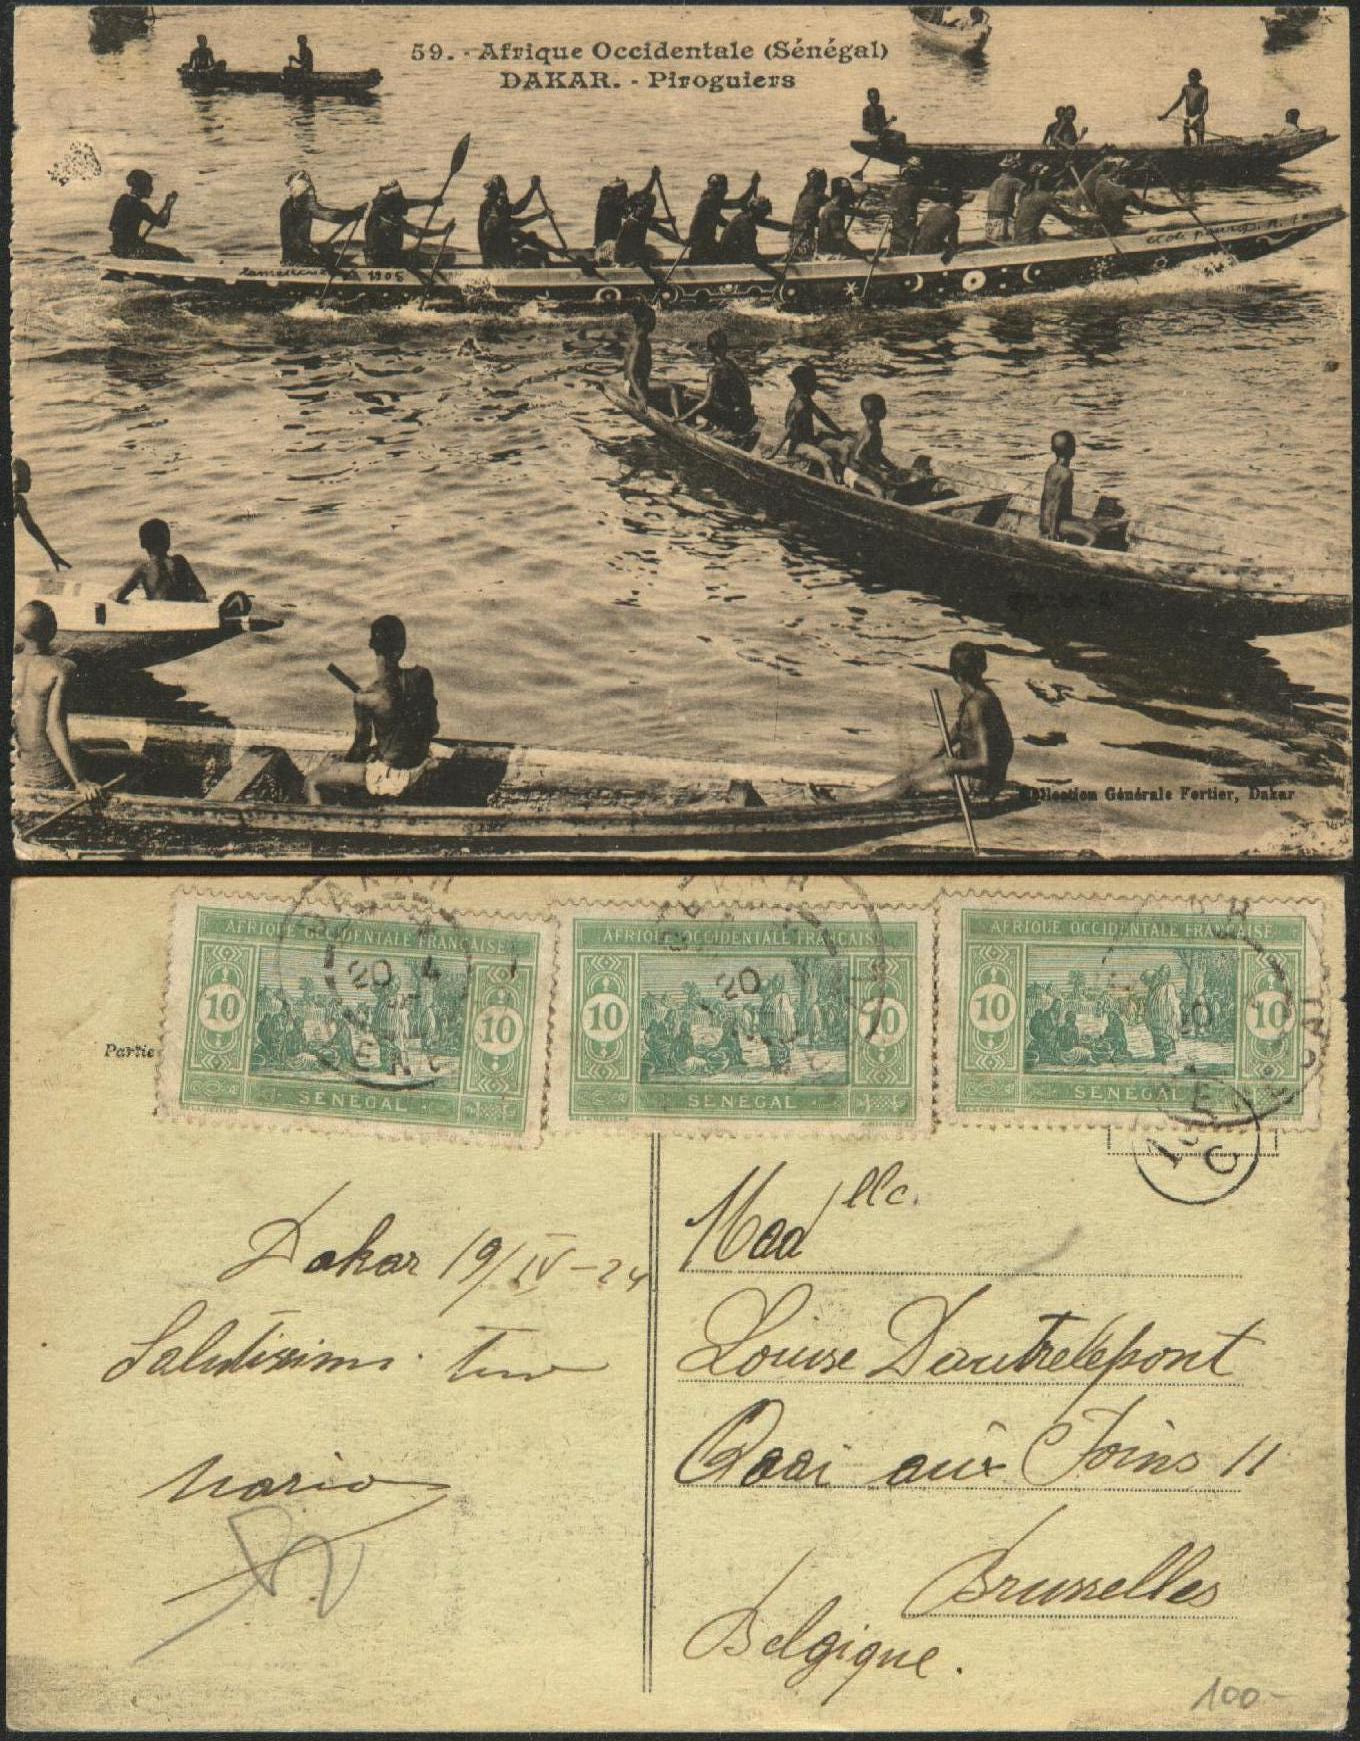 59. - Afrique Occidentale (Sénégal)
DAKAR. - Piroguiers
1905
Collection Générale Fortier, Dakar
AFRIQUE OCCIDENTALE FRANÇAISE
10 10
SÉNÉGAL
AFRIQUE OCCIDENTALE FRANÇAISE
10 10
SÉNÉGAL
AFRIQUE OCCIDENTALE FRANÇAISE
10 10
SÉNÉGAL
DAKAR
20 4
Partie
Dakar 19/IV-24
Salutissimi
Mario
Madlle.
Louise Dautrelepont
Quai aux Foins 11
Bruxelles
Belgique.
100-